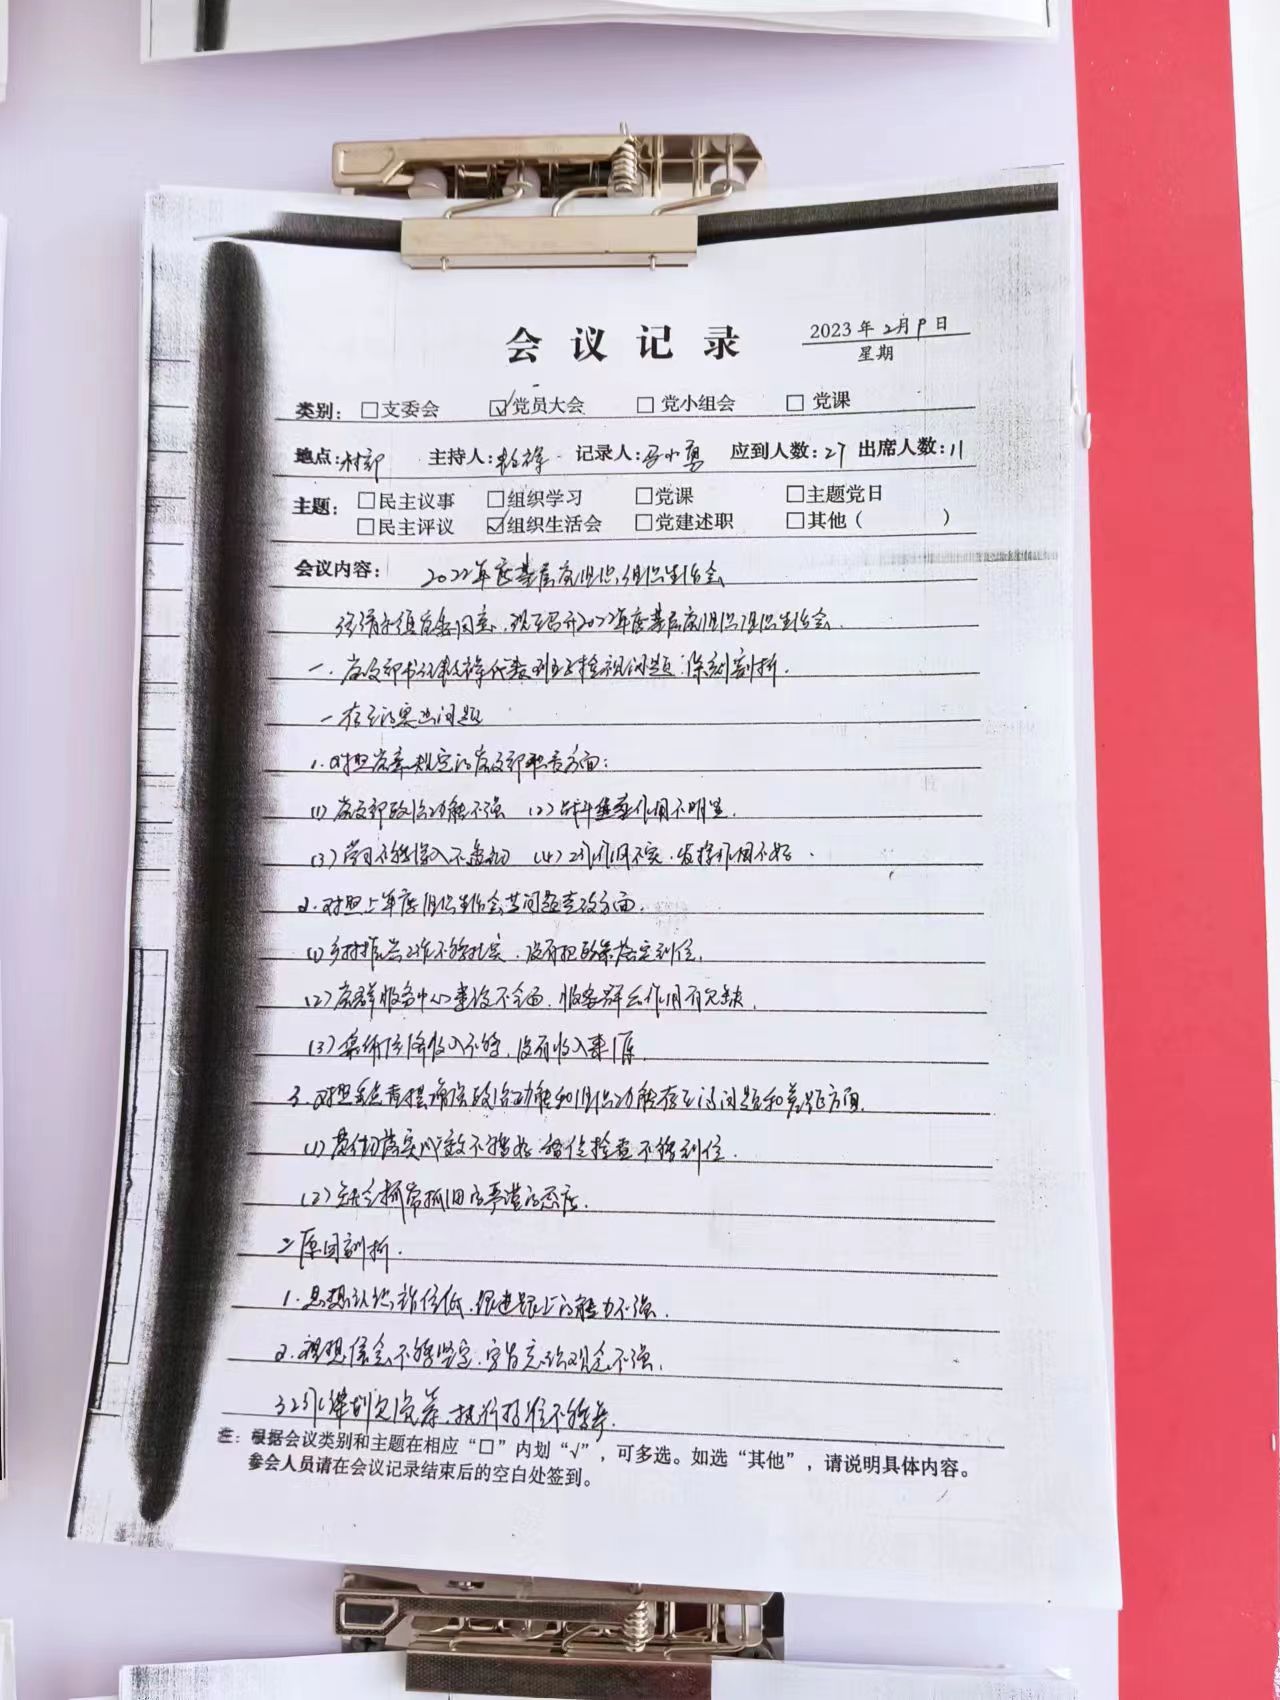 会议记录
2023年2月9日
星期
类别：□支委会 ☑党员大会 □党小组会 □党课
地点：村部 主持人： 记录人：马小勇 应到人数：27 出席人数：11
主题：□民主议事 □组织学习 □党课 □主题党日
□民主评议 ☑组织生活会 □党建述职 □其他（ ）
会议内容： 2022年度基层党组织组织生活会
党委同意，现在召开2022年度基层党组织组织生活会.
一.党支部书记 代表班子检视问题，深刻剖析.
一存在的突出问题
1.对照党章规定的党支部职责方面：
(1)党支部政治功能不强 (2)战斗堡垒作用不明显.
(3)学习不够深入不 (4)工作作风不实.发挥作用不好.
2.对照上年度组织生活会 问题 改方面.
(1)乡村振兴工作不够扎实.没有把政策落实到位.
(2)党群服务中心建设不全面.服务群众作用有欠缺.
(3)集体经济收入不够，没有收入来源.
3.对照 增强政治功能和组织功能存在的问题和差距方面.
(1) 落实 不够好. 检查不够到位.
(2) 抓常抓 的严谨的态度.
二原因剖析.
1.思想认识站位低. 的能力不强.
2.理想信念不够坚定.宗旨 观念不强.
3工作 欠 ，执行 不够
注：根据会议类别和主题在相应“□”内划“√”，可多选。如选“其他”，请说明具体内容。
参会人员请在会议记录结束后的空白处签到。